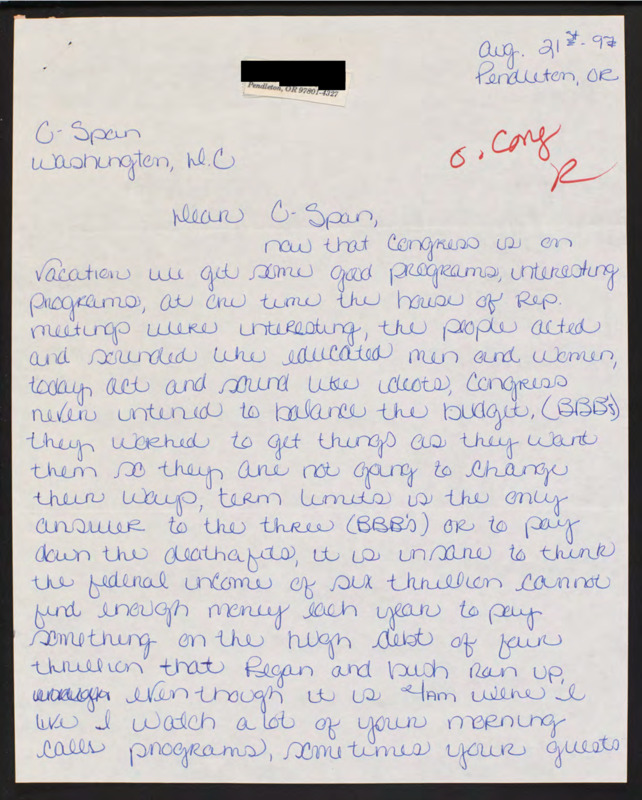 Aug. 21st- 97
Pendleton, OR
Pendleton, OR 97801-4327
C-Span
Washington, D.C
o. Cong
R
Dear C-Span,
now that Congress is on
vacation we get some good programs, interesting
programs, at one time the house of Rep.
meetings were interesting, the people acted
and sounded like educated men and women,
today act and sound like ideots, Congress
never intened to balance the budget, (BBB's)
they worked to get things as they want
them so they are not going to change
their ways, term limits is the only
answer to the three (BBB's) or to pay
down the deathafits, it is insane to think
the federal income of six thrillion cannot
find enough money each year to pay
something on the hugh debt of four
thrillion that Regan and bush ran up,
even though it is 4am were I
live I watch a lot of your morning
calls programs, sometimes your guests